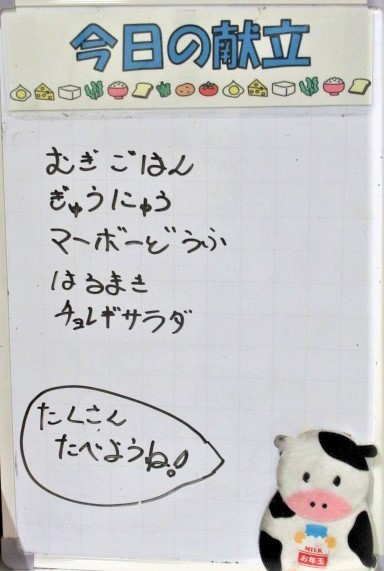 今日の献立
むぎごはん
ぎゅうにゅう
マーボーどうふ
はるまき
チョレギサラダ
たくさん
たべようね!
MILK
お年玉